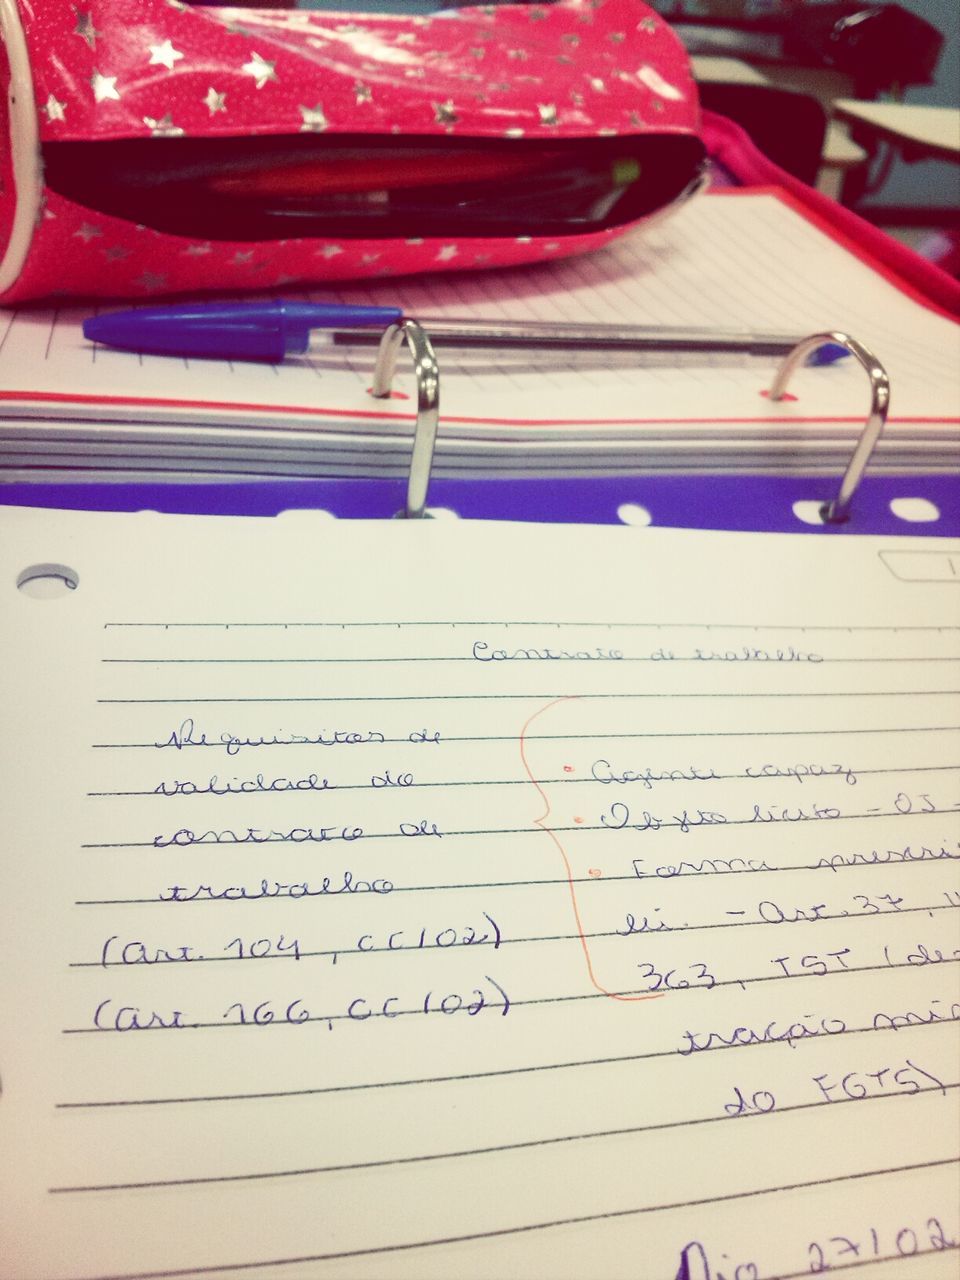 Contrato de trabalho
Requisitos de
validade do
contrato de
trabalho
(art. 104, CC/02)
(art. 166, CC/02)
• Agente capaz
• Objeto lícito - OJ -
• Forma
lei. - Art. 37,
363, TST (de
tração
do FGTS)
Dia 27/02